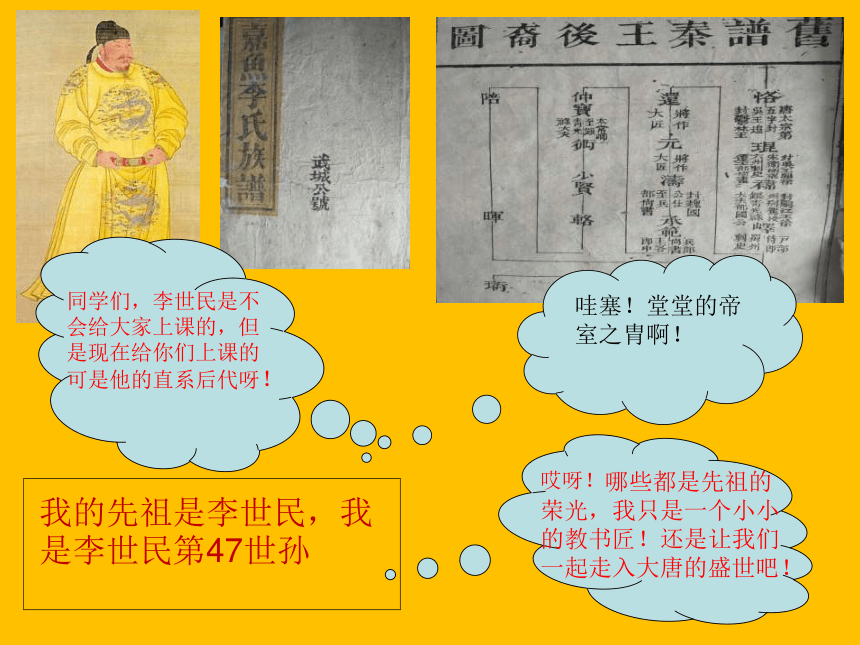 嘉魚李氏族譜
舊譜秦王後裔圖
陪
仲寶
還
恪
將作
大匠
元
將作
大匠
濤
少賢
暉
輅
承範
同学们，李世民是不
会给大家上课的，但
是现在给你们上课的
可是他的直系后代呀！
哇塞！堂堂的帝
室之胄啊！
我的先祖是李世民，我
是李世民第47世孙
哎呀！哪些都是先祖的
荣光，我只是一个小小
的教书匠！还是让我们
一起走入大唐的盛世吧！